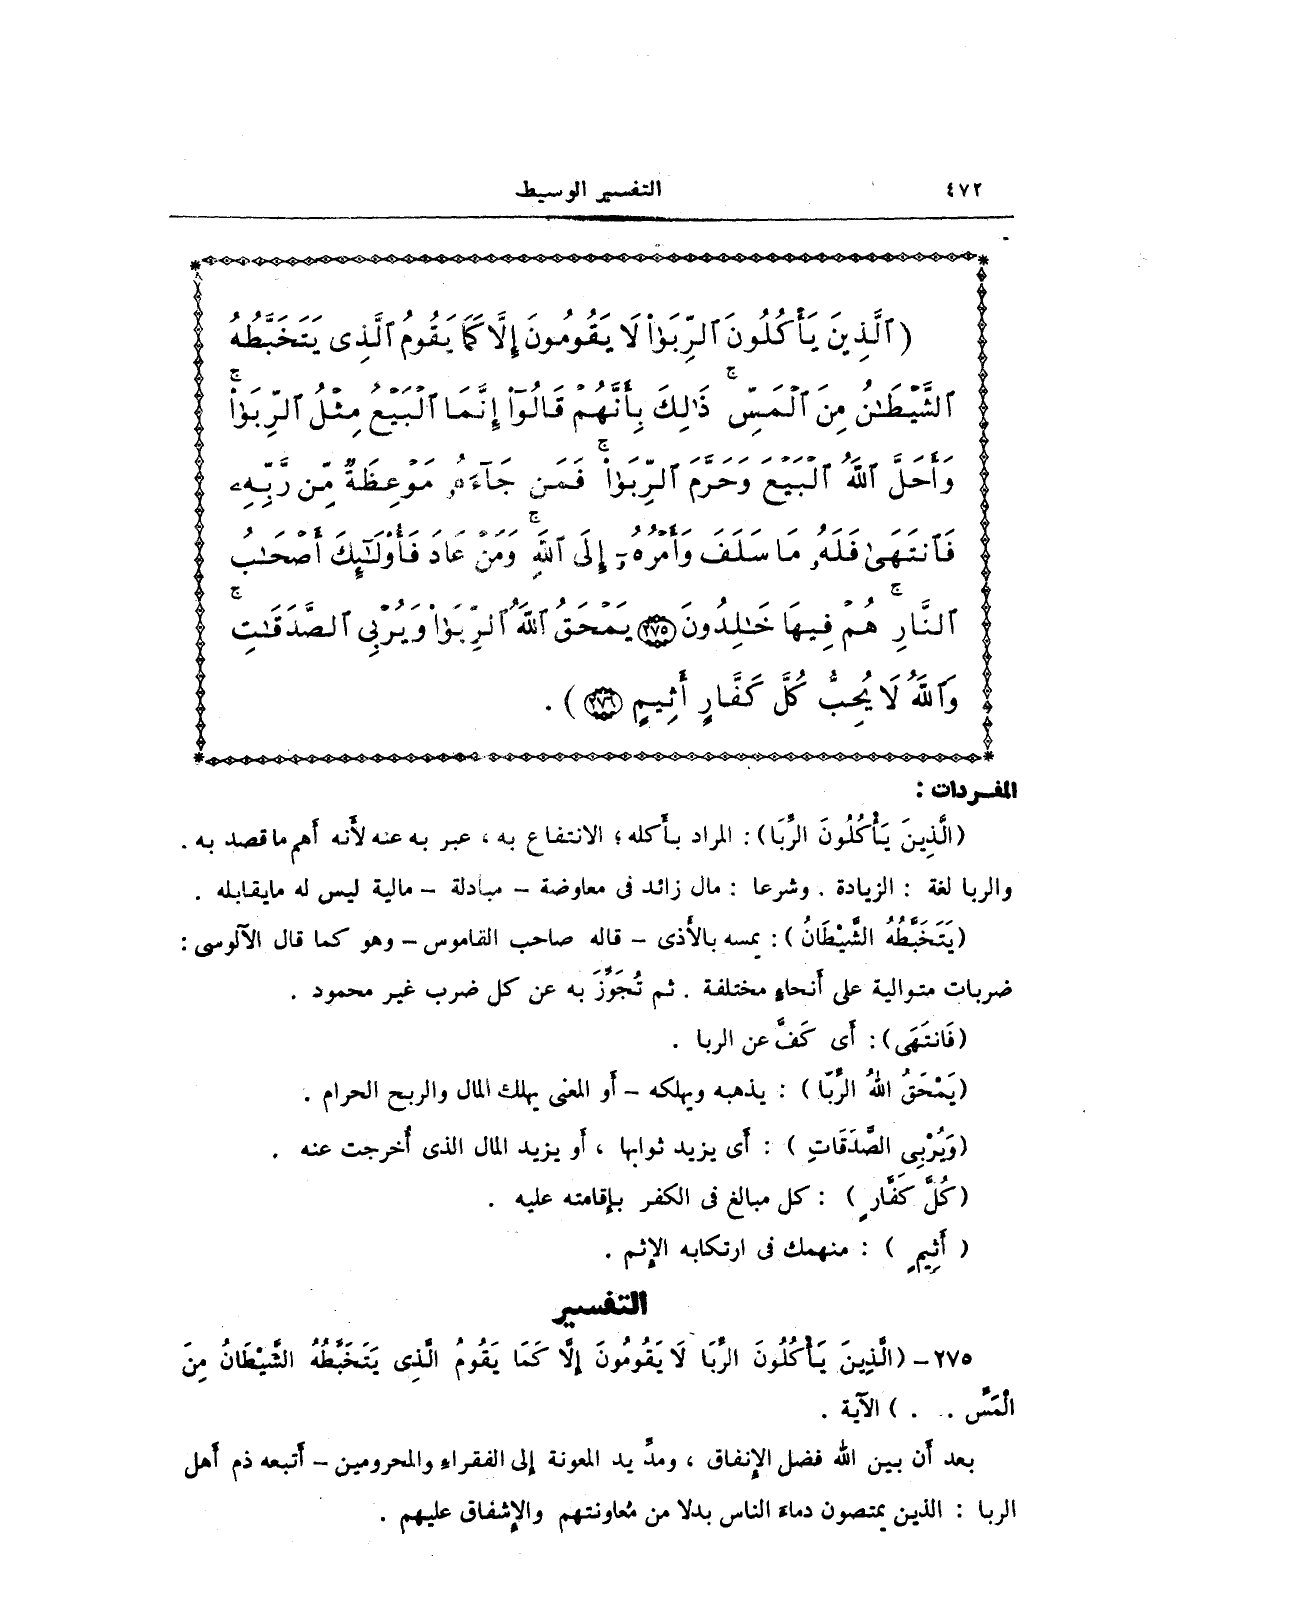 ٤٧٢ التفسير الوسيط
( ٱلَّذِينَ يَأْكُلُونَ ٱلرِّبَوٰا۟ لَا يَقُومُونَ إِلَّا كَمَا يَقُومُ ٱلَّذِى يَتَخَبَّطُهُ
ٱلشَّيْطَـٰنُ مِنَ ٱلْمَسِّ ۚ ذَٰلِكَ بِأَنَّهُمْ قَالُوٓا۟ إِنَّمَا ٱلْبَيْعُ مِثْلُ ٱلرِّبَوٰا۟ ۚ
وَأَحَلَّ ٱللَّهُ ٱلْبَيْعَ وَحَرَّمَ ٱلرِّبَوٰا۟ ۚ فَمَن جَآءَهُۥ مَوْعِظَةٌ مِّن رَّبِّهِۦ
فَٱنتَهَىٰ فَلَهُۥ مَا سَلَفَ وَأَمْرُهُۥٓ إِلَى ٱللَّهِ ۚ وَمَنْ عَادَ فَأُو۟لَـٰٓئِكَ أَصْحَـٰبُ
ٱلنَّارِ ۚ هُمْ فِيهَا خَـٰلِدُونَ ٢٧٥ يَمْحَقُ ٱللَّهُ ٱلرِّبَوٰا۟ وَيُرْبِى ٱلصَّدَقَـٰتِ ۚ
وَٱللَّهُ لَا يُحِبُّ كُلَّ كَفَّارٍ أَثِيمٍ ٢٧٦ ) .
المفـردات :
(الَّذِينَ يَأْكُلُونَ الرِّبَا) : المراد بأكله؛ الانتفاع به ، عبر به عنه لأنه أهم ما قصد به .
والربا لغة : الزيادة . وشرعا : مال زائد فى معاوضة – مبادلة – مالية ليس له مايقابله .
(يَتَخَبَّطُهُ الشَّيْطَانُ) : يمسه بالأذى – قاله صاحب القاموس – وهو كما قال الآلوسى :
ضربات متوالية على أنحاءٍ مختلفة . ثم تُجَوِّزَ به عن كل ضرب غير محمود .
(فَانتَهَى) : أى كَفَّ عن الربا .
(يَمْحَقُ اللهُ الرِّبَا) : يذهبه ويهلكه – أو المعنى يهلك المال والربح الحرام .
(وَيُرْبِى الصَّدَقَاتِ ) : أى يزيد ثوابها ، أو يزيد المال الذى أُخرجت عنه .
(كُلَّ كَفَّارٍ ) : كل مبالغ فى الكفر بإقامته عليه .
( أَثِيمٍ ) : منهمك فى ارتكابه الإثم .
التفسير
٢٧٥ – (الَّذِينَ يَأْكُلُونَ الرِّبَا لَا يَقُومُونَ إِلَّا كَمَا يَقُومُ الَّذِى يَتَخَبَّطُهُ الشَّيْطَانُ مِنَ
الْمَسِّ . . . ) الآية .
بعد أن بين الله فضل الإنفاق ، ومدَّ يد المعونة إلى الفقراءِ والمحرومين – أتبعه ذم أهل
الربا : الذين يمتصون دماءَ الناس بدلا من مُعاونتهم والإشفاق عليهم .